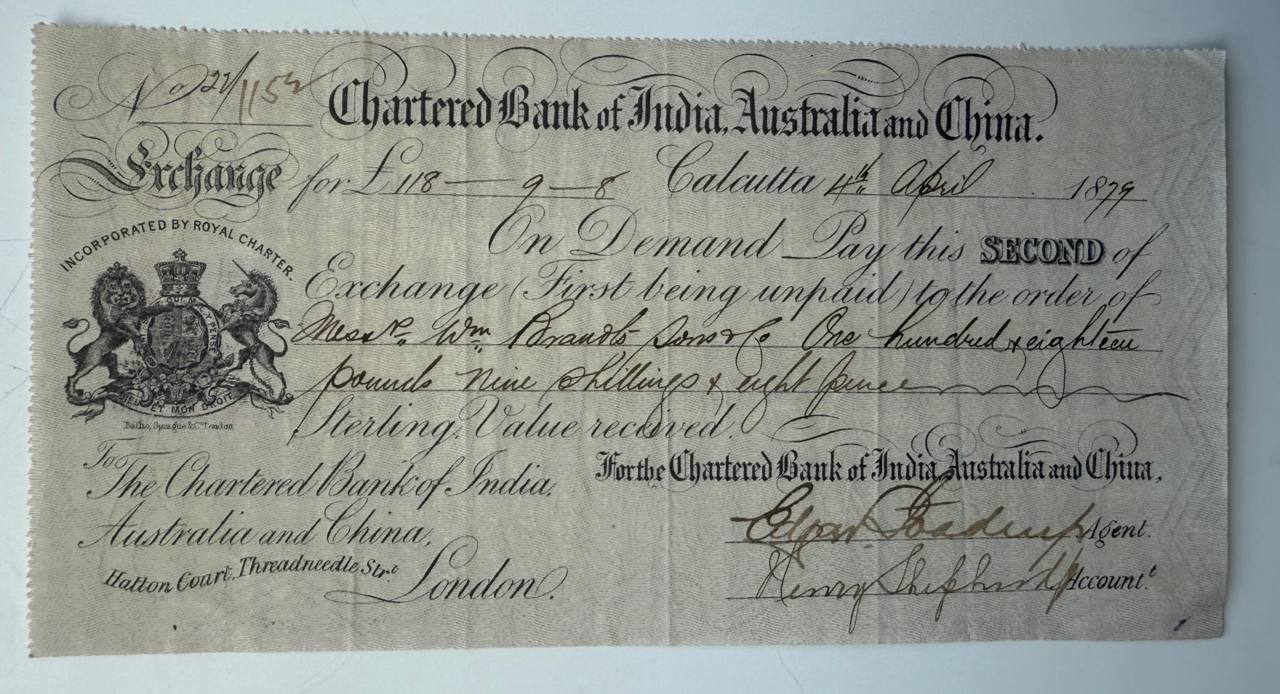 No 22/1152
Chartered Bank of India, Australia and China.
Exchange for £ 118 — 9 — 8 Calcutta 4th April 1879
INCORPORATED BY ROYAL CHARTER.
On Demand Pay this SECOND of
Exchange (First being unpaid) to the order of
Messrs. Wm. Brandts Sons & Co One hundred & eighteen
pounds nine shillings & eight pence
DIEU ET MON DROIT
Batho, Sprague & Co. London
Sterling, Value received.
To
The Chartered Bank of India,
Australia and China,
Hatton Court, Threadneedle Strt.
London.
For the Chartered Bank of India, Australia and China,
Edgar Agent.
Henry Shepherd Accountt.